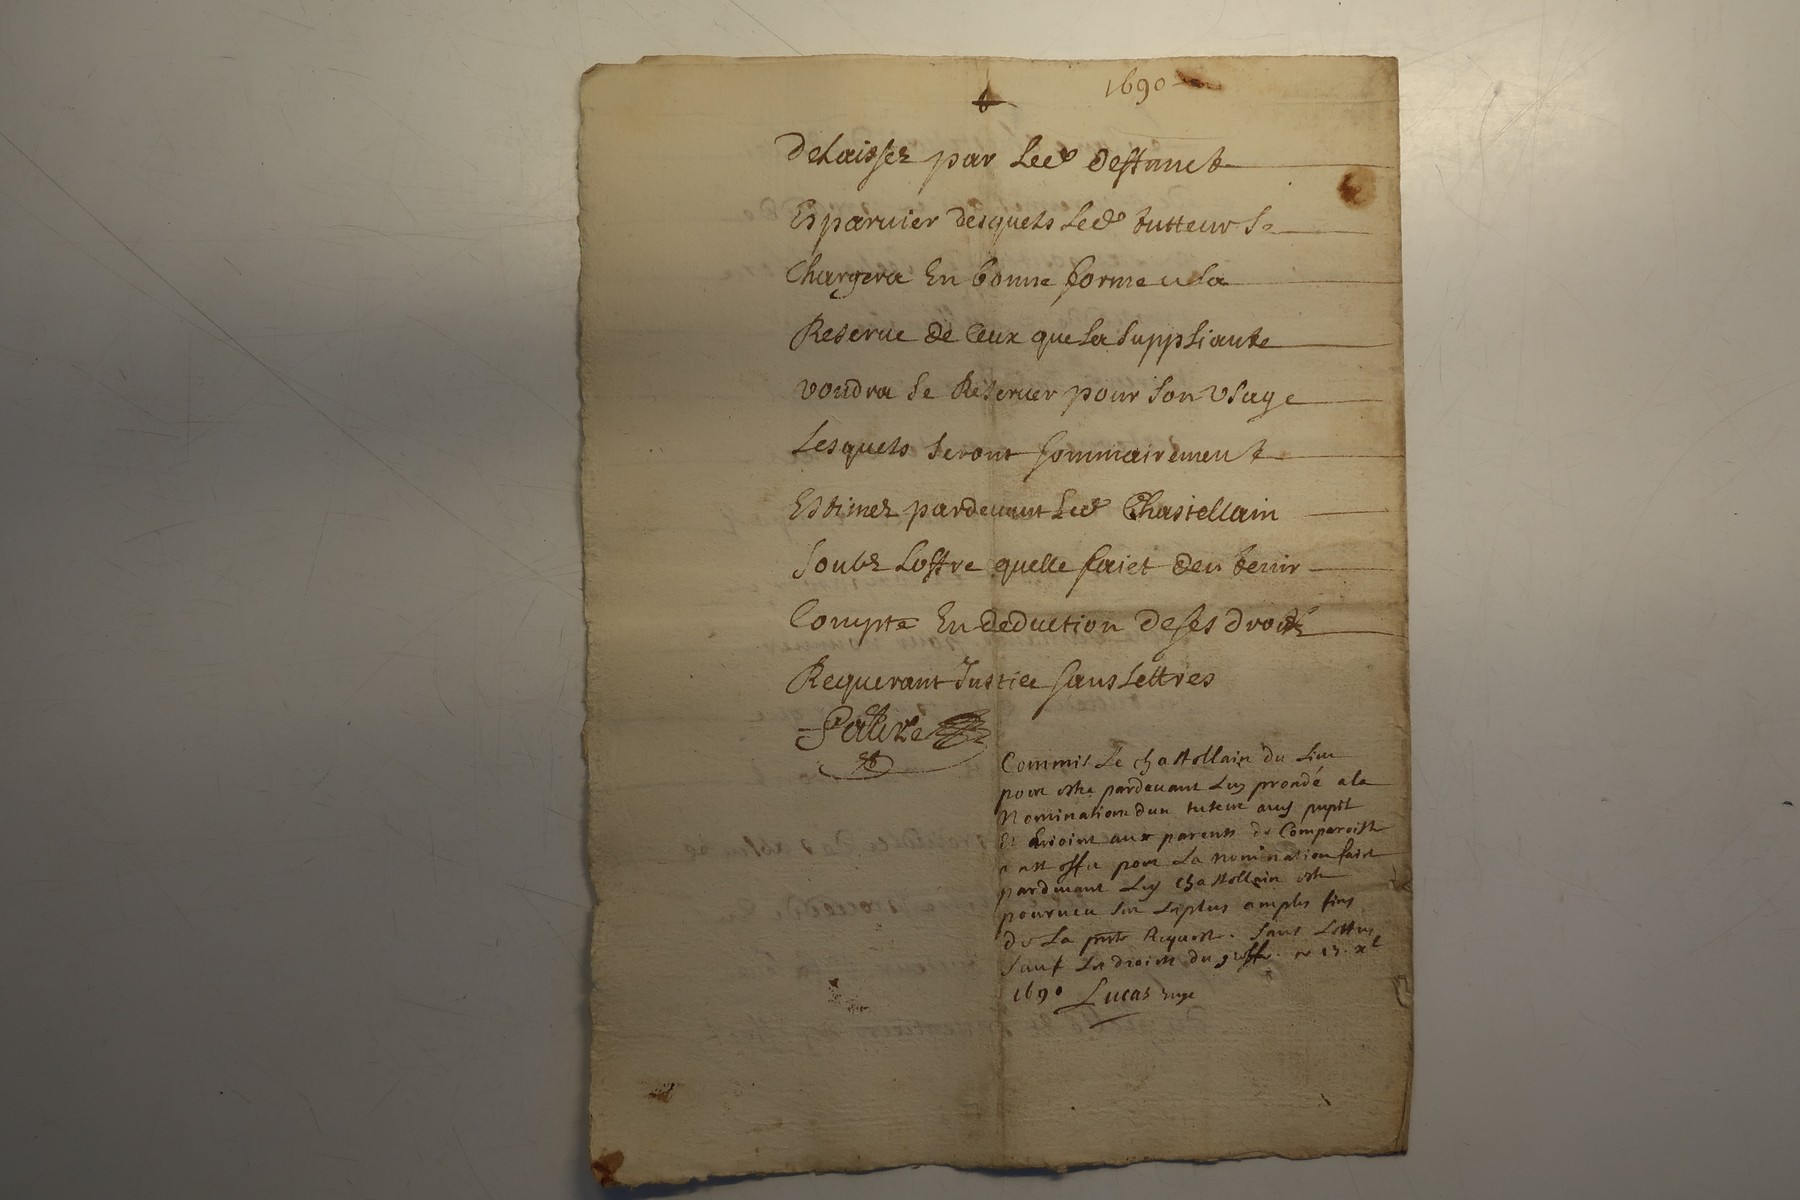 1690
delaissez par Led deffunct
Esparuier desquels Led tutteur se
Chargera En bonne forme a La
Reserue de Ceux que La Suppliante
voudra se Reseruer pour son Vsage
Lesquels seront sommairement
Estimez pardeuant Led Chastellain
soubz Loffre quelle faict den tenir
Compte En deduction de ses droitz
Requerant Justice sans Lettres
Commis Le chastellain du Lieu
pour estre pardeuant Luy procedé a la
Nomination dun tuteur aux pupil
Et Enjoint aux parents de Comparoistre
pour La nomination faict
pardeuant Luy chastellain estre
pourueu sur Les plus amples fins
de La pnte Requeste. sans Lettres
sauf Les droits du greffe. ce 13. xb
1690 Lucas Juge